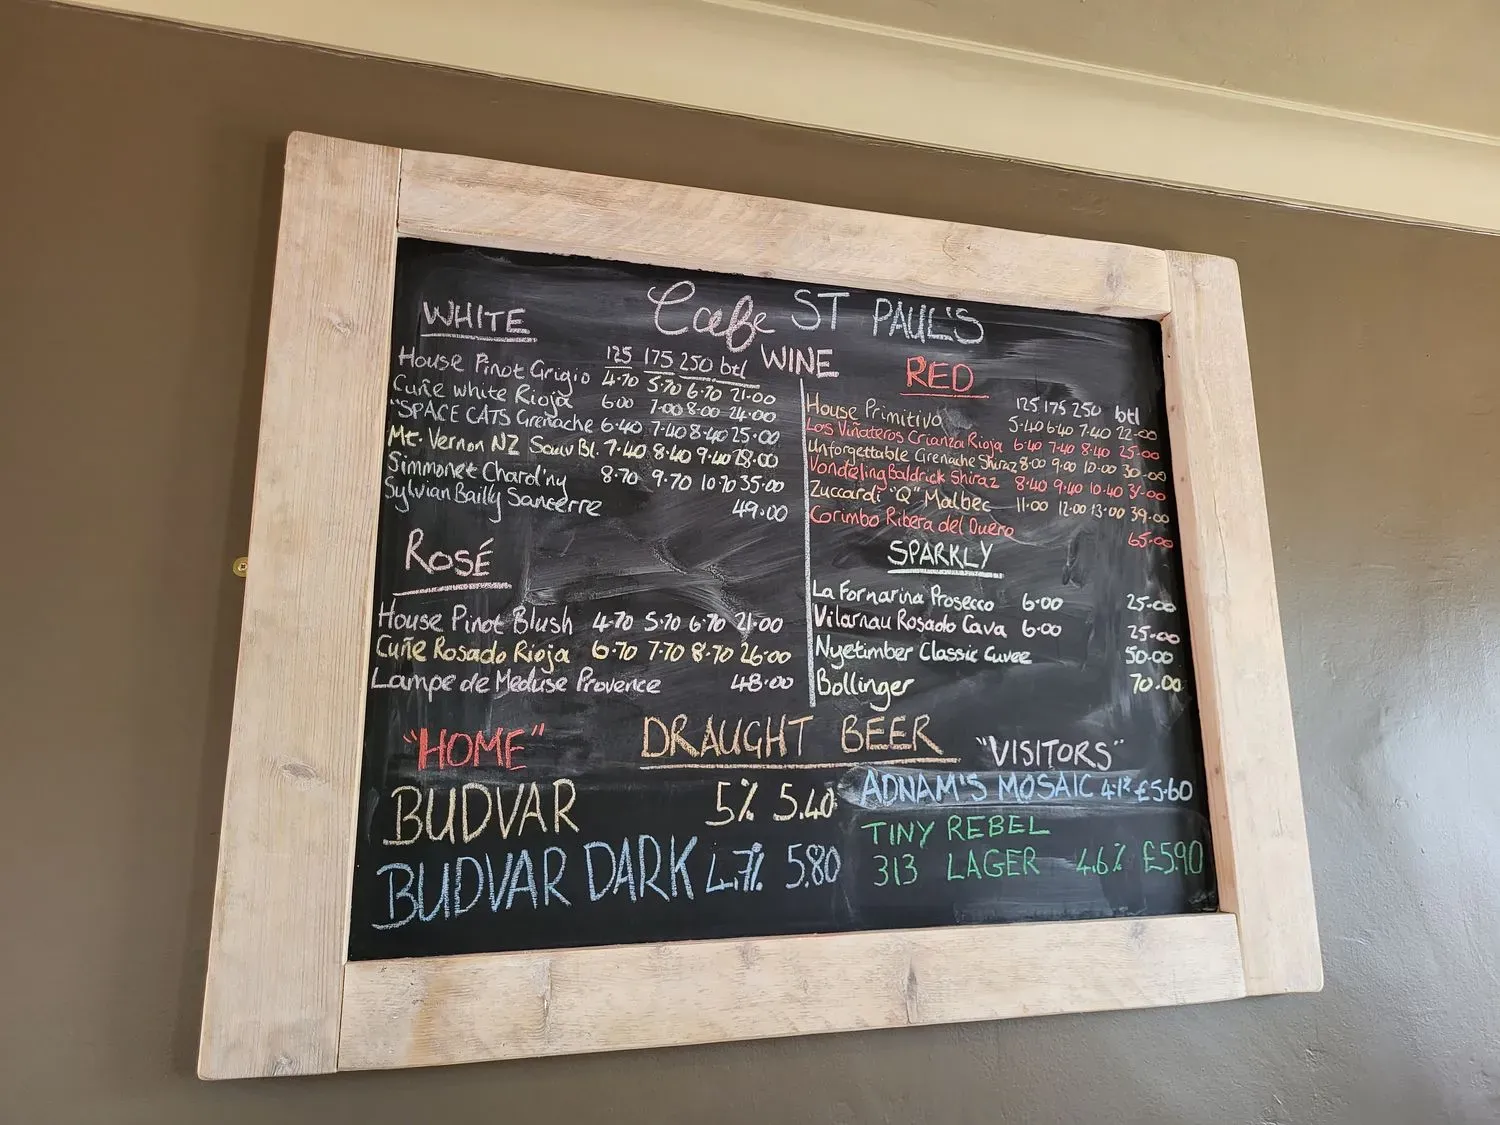 Cafe ST PAUL'S
WINE
WHITE
125 175 250 btl
House Pinot Grigio 4.70 5.70 6.70 21.00
Cuñe white Rioja 6.00 7.00 8.00 24.00
"SPACE CATS Grenache 6.40 7.40 8.40 25.00
Mt. Vernon NZ Sauv Bl. 7.40 8.40 9.40 28.00
Simmonet Chard'ny 8.70 9.70 10.70 35.00
Sylvian Bailly Sancerre 49.00
ROSÉ
House Pinot Blush 4.70 5.70 6.70 21.00
Cuñe Rosado Rioja 6.70 7.70 8.70 26.00
Lampe de Meduse Provence 48.00
RED
125 175 250 btl
House Primitivo 5.40 6.40 7.40 22.00
Los Viñateros Crianza Rioja 6.40 7.40 8.40 25.00
Unforgettable Grenache Shiraz 8.00 9.00 10.00 30.00
Vondeling Baldrick Shiraz 8.40 9.40 10.40 31.00
Zuccardi "Q" Malbec 11.00 12.00 13.00 39.00
Corimbo Ribera del Duero 65.00
SPARKLY
La Fornarina Prosecco 6.00 25.00
Vilarnau Rosado Cava 6.00 25.00
Nyetimber Classic Cuvee 50.00
Bollinger 70.00
DRAUGHT BEER
"HOME"
BUDVAR 5% 5.40
BUDVAR DARK 4.7% 5.80
"VISITORS"
ADNAM'S MOSAIC £5.60
TINY REBEL
313 LAGER 4.6% £5.90